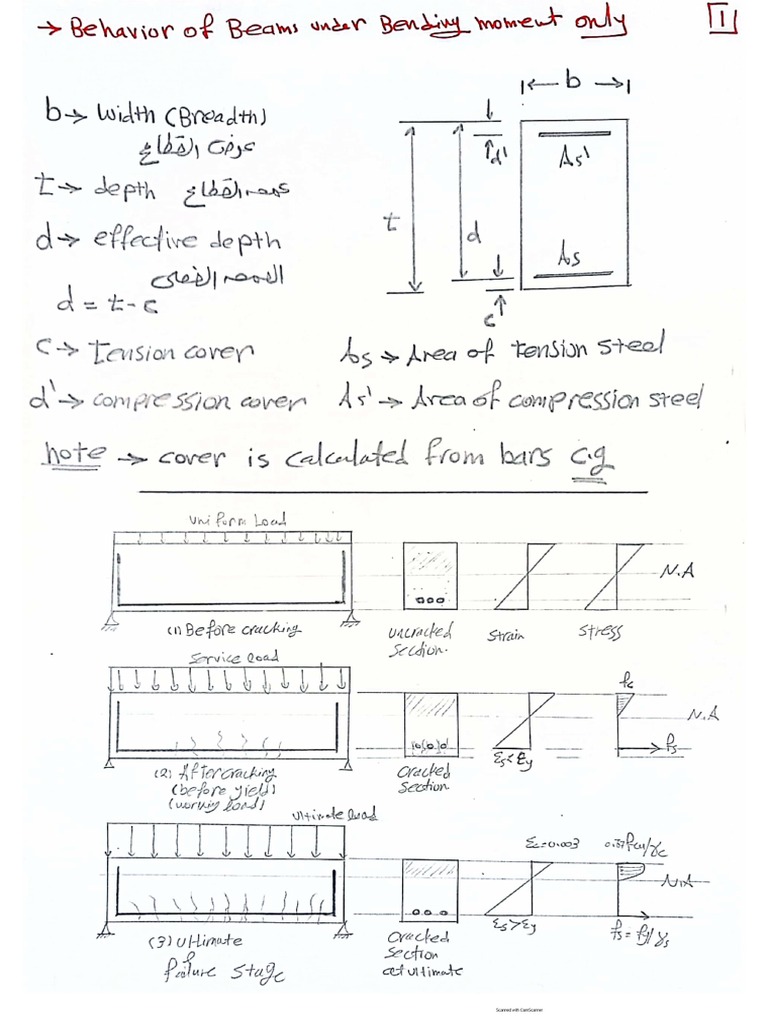 → Behavior of Beams under Bending moment only
1
b → Width (Breadth)
عرض القطاع
t → depth عمق القطاع
d → effective depth
العمق الفعال
d = t - c
c → Tension cover
d' → compression cover
b
d'
As'
t
d
As
c
As → Area of tension steel
As' → Area of compression steel
note → cover is calculated from bars c.g
Uniform Load
(1) Before cracking
uncracked
Section.
Strain
Stress
N.A
Service Load
(2) After cracking
(before yield)
(working load)
Cracked
Section
εs < εy
fc
N.A
fs
Ultimate Load
(3) Ultimate
failure stage
Cracked
Section
at ultimate
εc = 0.003
εs > εy
N.A
fs = fy/γs
Scanned with CamScanner